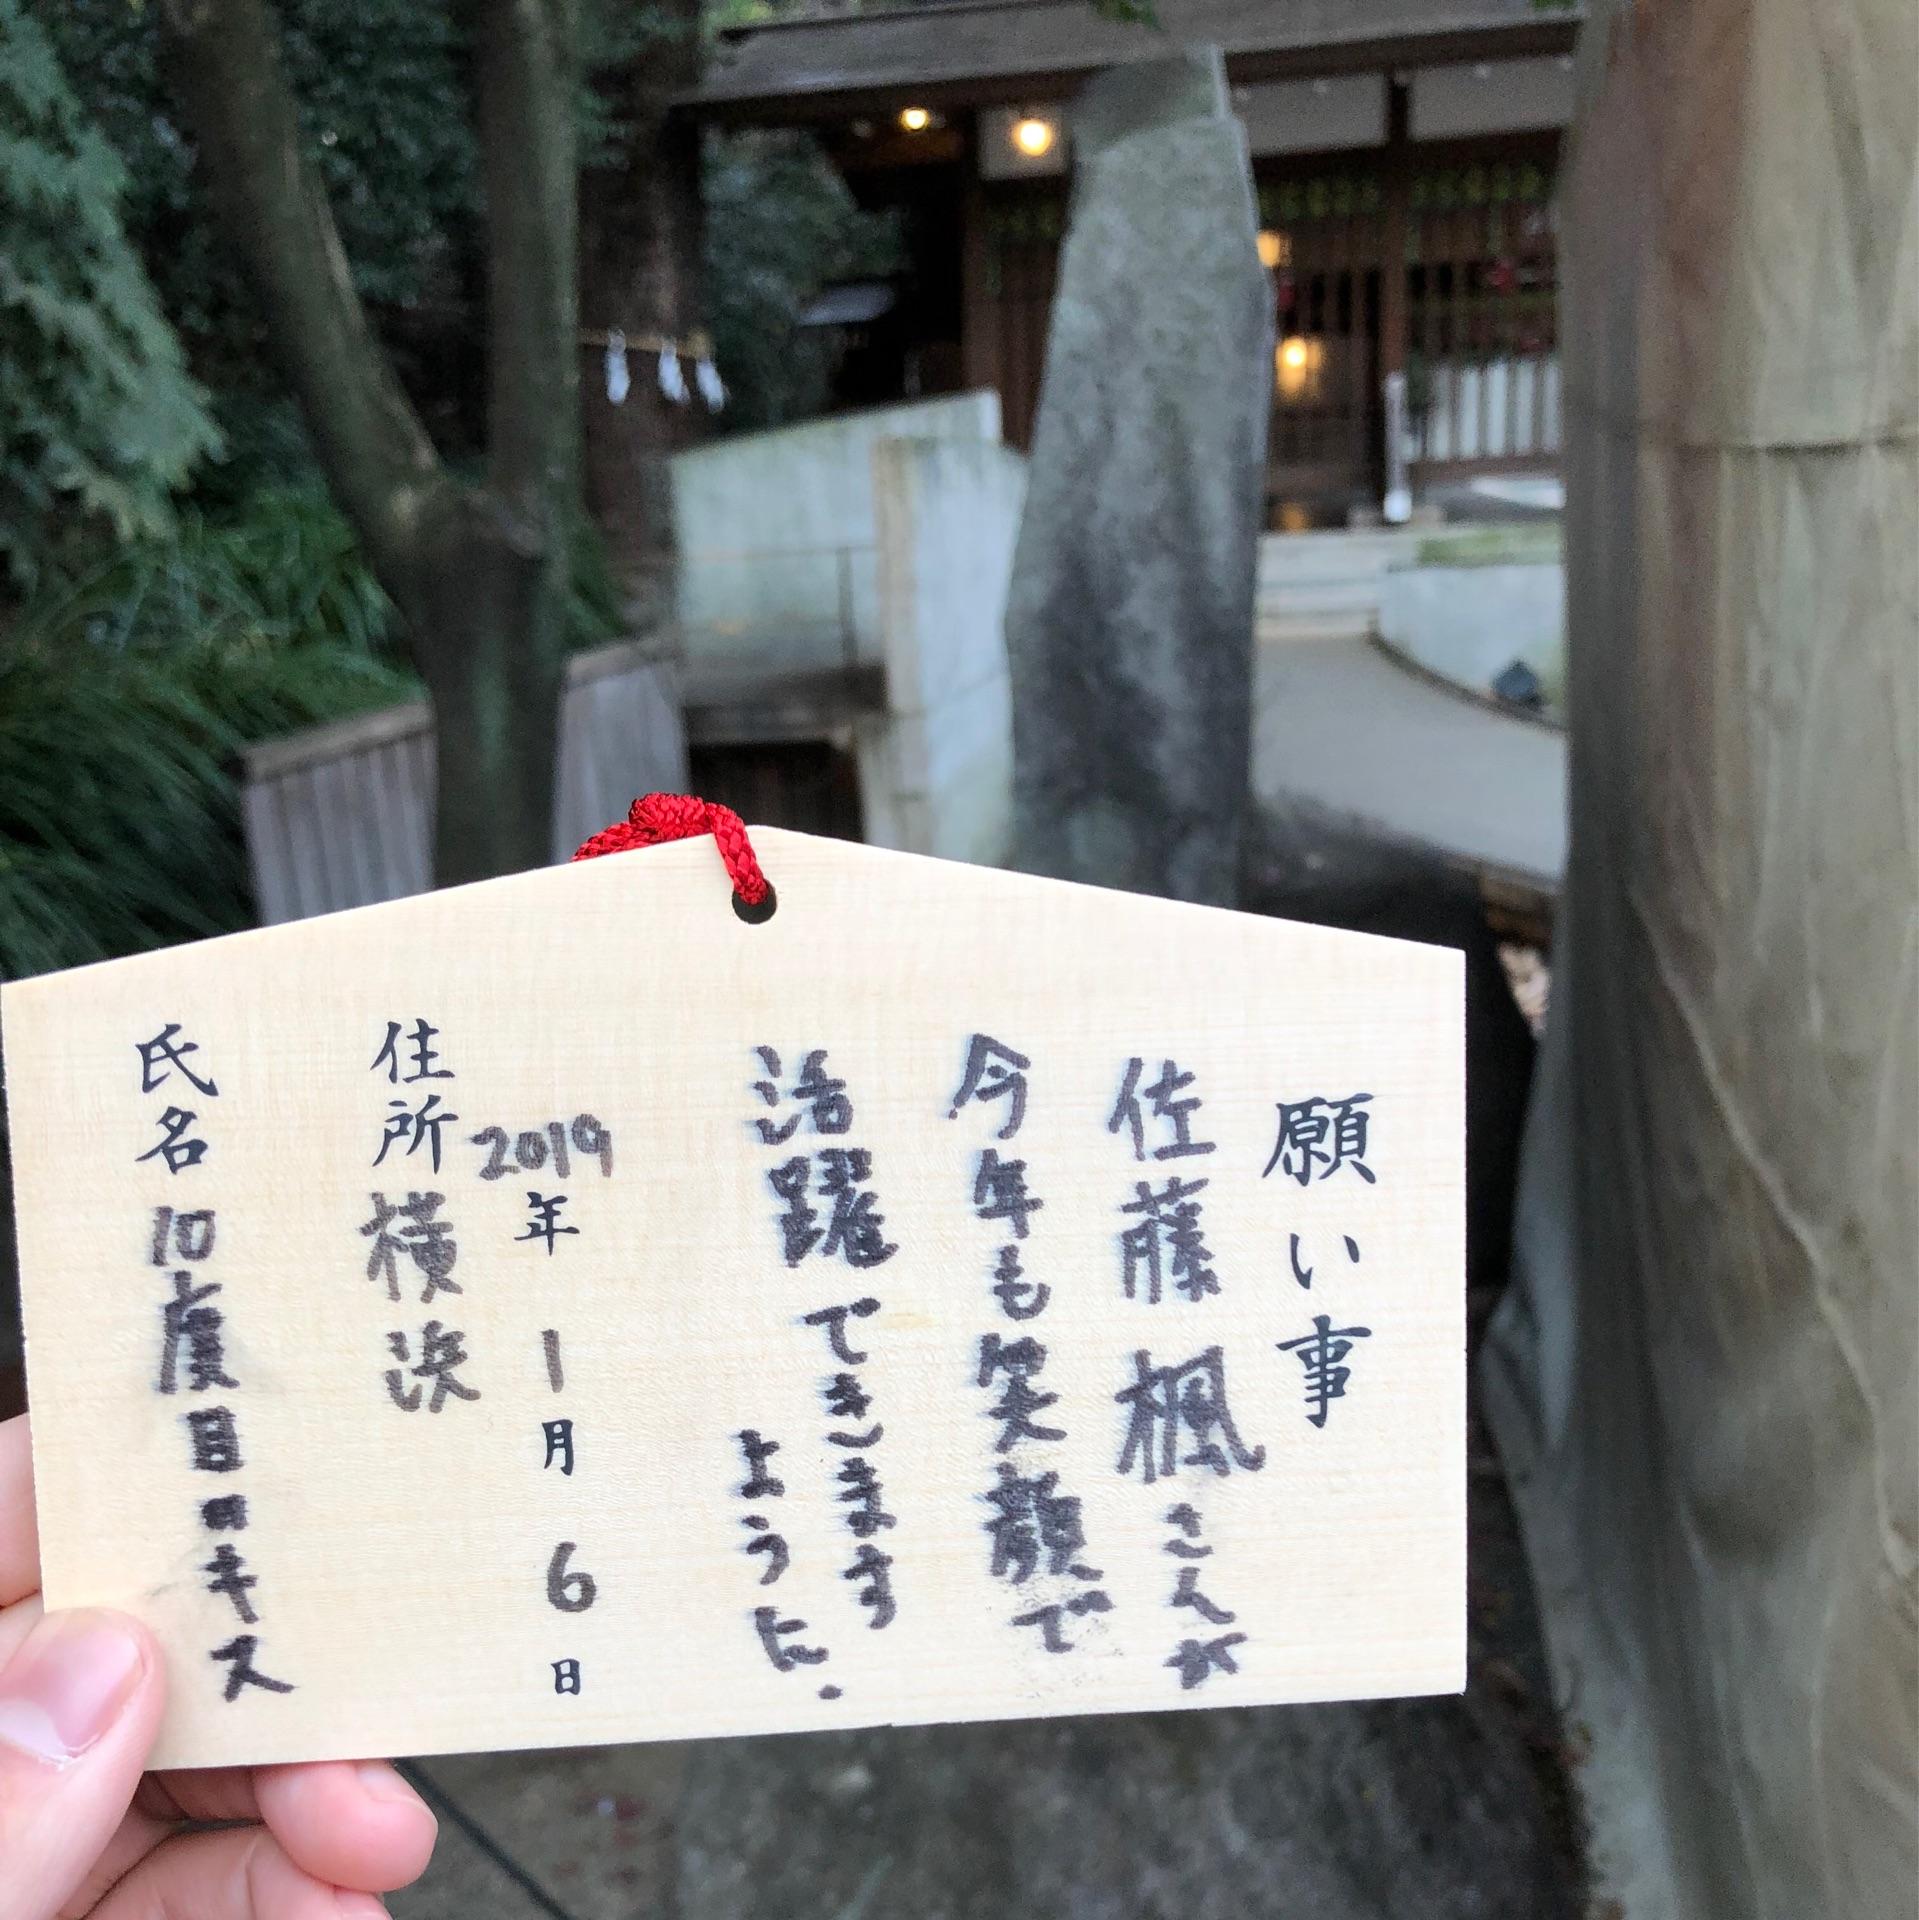 願い事
佐藤楓さんが
今年も笑顔で
活躍できます
ように.
2019年1月6日
住所 横浜
氏名 10度目ロキス